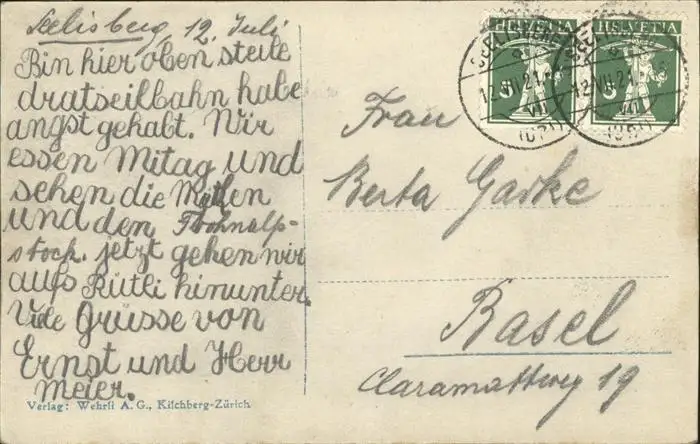 Seelisberg 12. Juli
Bin hier oben steile
dratseilbahn habe
angst gehabt. Wir
essen Mitag und
sehen die Mythen
und den Frohnalp-
stock. jetzt gehen wir
aufs Rütli hinunter.
Viele Grüsse von
Ernst und Herr
Meier.
Verlag: Wehrli A. G., Kilchberg-Zürich
HELVETIA HELVETIA
SEELISBERG
12.VII.21
(URI)
SEELISBERG
12.VII.21
(URI)
Frau
Berta
Basel
Claramattweg 19